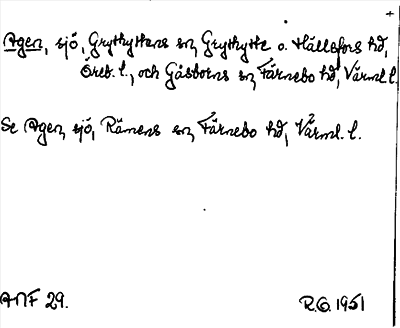 Agen, sjö, Grythyttens sn, Grythytte o. Hällefors hd,
Öreb. l., och Gåsborns sn, Färnebo hd, Värml. l.
Se Agen, sjö, Rämens sn, Färnebo hd, Värml. l.
ANF 29.
R.G. 1951